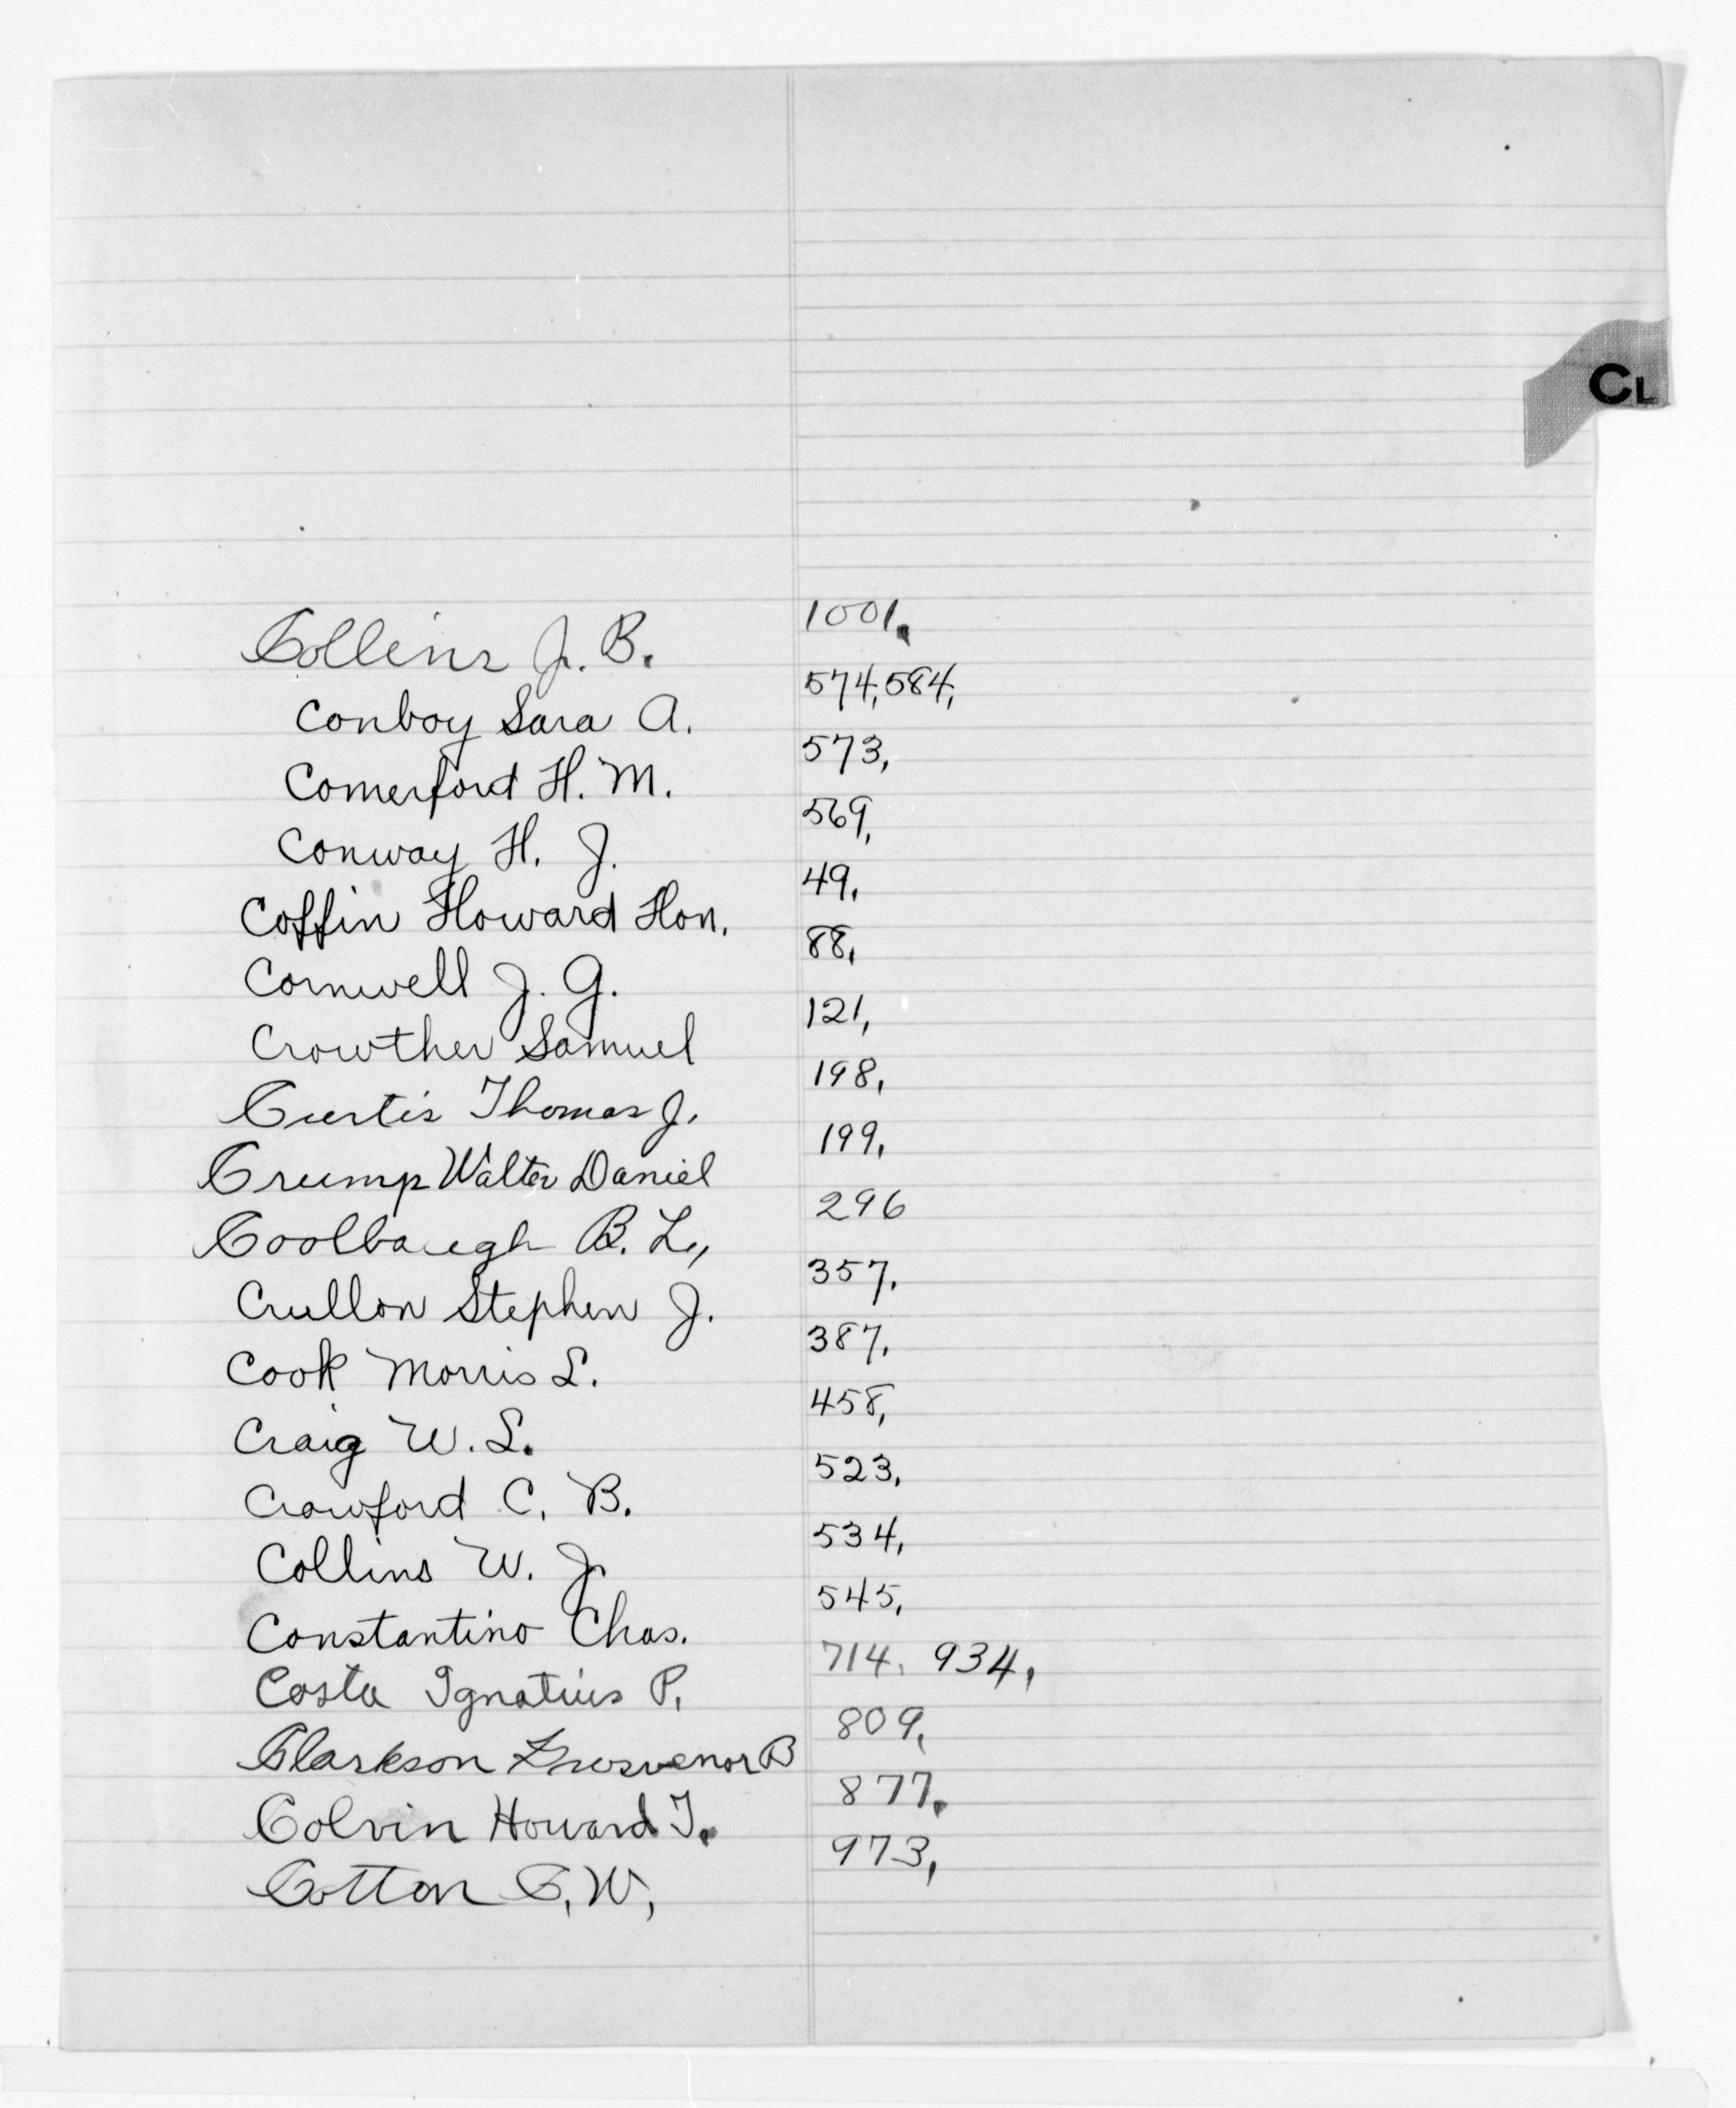 CL
Collins J. B. 1001.
Conboy Sara A. 574, 584,
Comerford H. M. 573,
Conway H. J. 569,
Coffin Howard Hon. 49,
Cornwell J. G. 88,
Crowther Samuel 121,
Curtis Thomas J. 198,
Crump Walter Daniel 199,
Coolbaugh B. L., 296
Crullon Stephen J. 357,
Cook Morris L. 387,
Craig W. L. 458,
Crawford C. B. 523,
Collins W. J. 534,
Constantino Chas. 545,
Costa Ignatius P. 714, 934,
Clarkson Grosvenor B 809,
Colvin Howard T. 877.
Cotton C. W, 973,